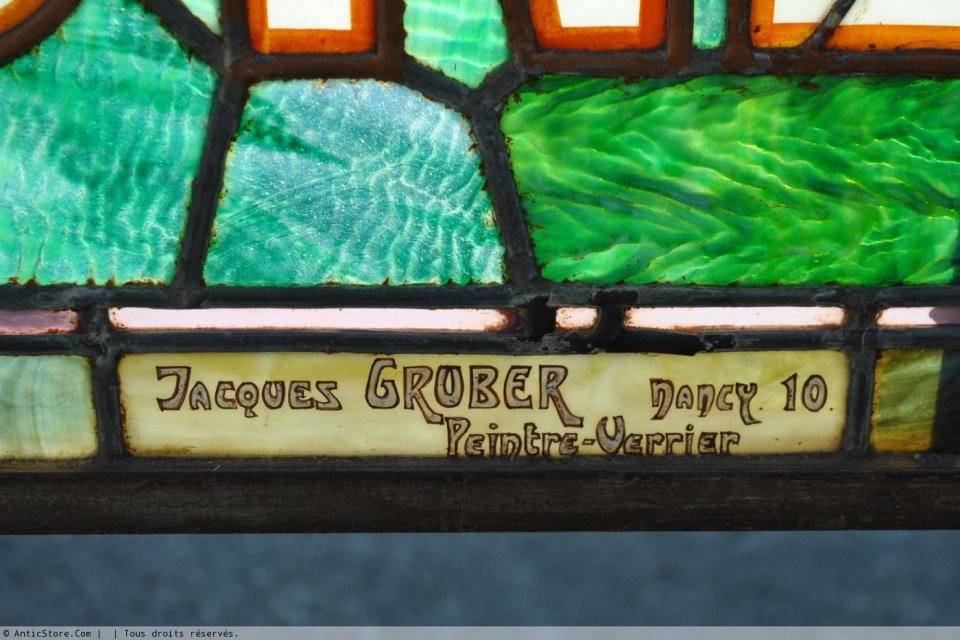 Jacques GRUBER Nancy. 10.
Peintre-Verrier
© AnticStore.Com | | Tous droits réservés.